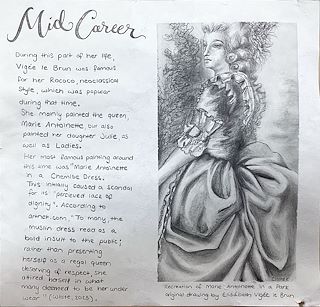 Mid Career
During this part of her life,
Vigée le Brun was famous
for her Rococo, neoclassical
Style, which was popular
during that time.
She mainly painted the queen,
Marie Antoinette, but also
painted her daughter Julie as
well as Ladies.
Her most famous painting around
this time was "Marie Antoinette
in a Chemise Dress.
This initially caused a scandal
for its "percieved lack of
dignity". According to
artnet.com "To many, the
muslin dress read as a
bold insult to the public;
rather than presenting
herself as a regal queen
deserving of respect, she
attired herself in what
many deemed to be her under
wear" (White, 2023).
Recreation of Marie Antoinette in a Park
original drawing by Elisabeth Vigée le Brun